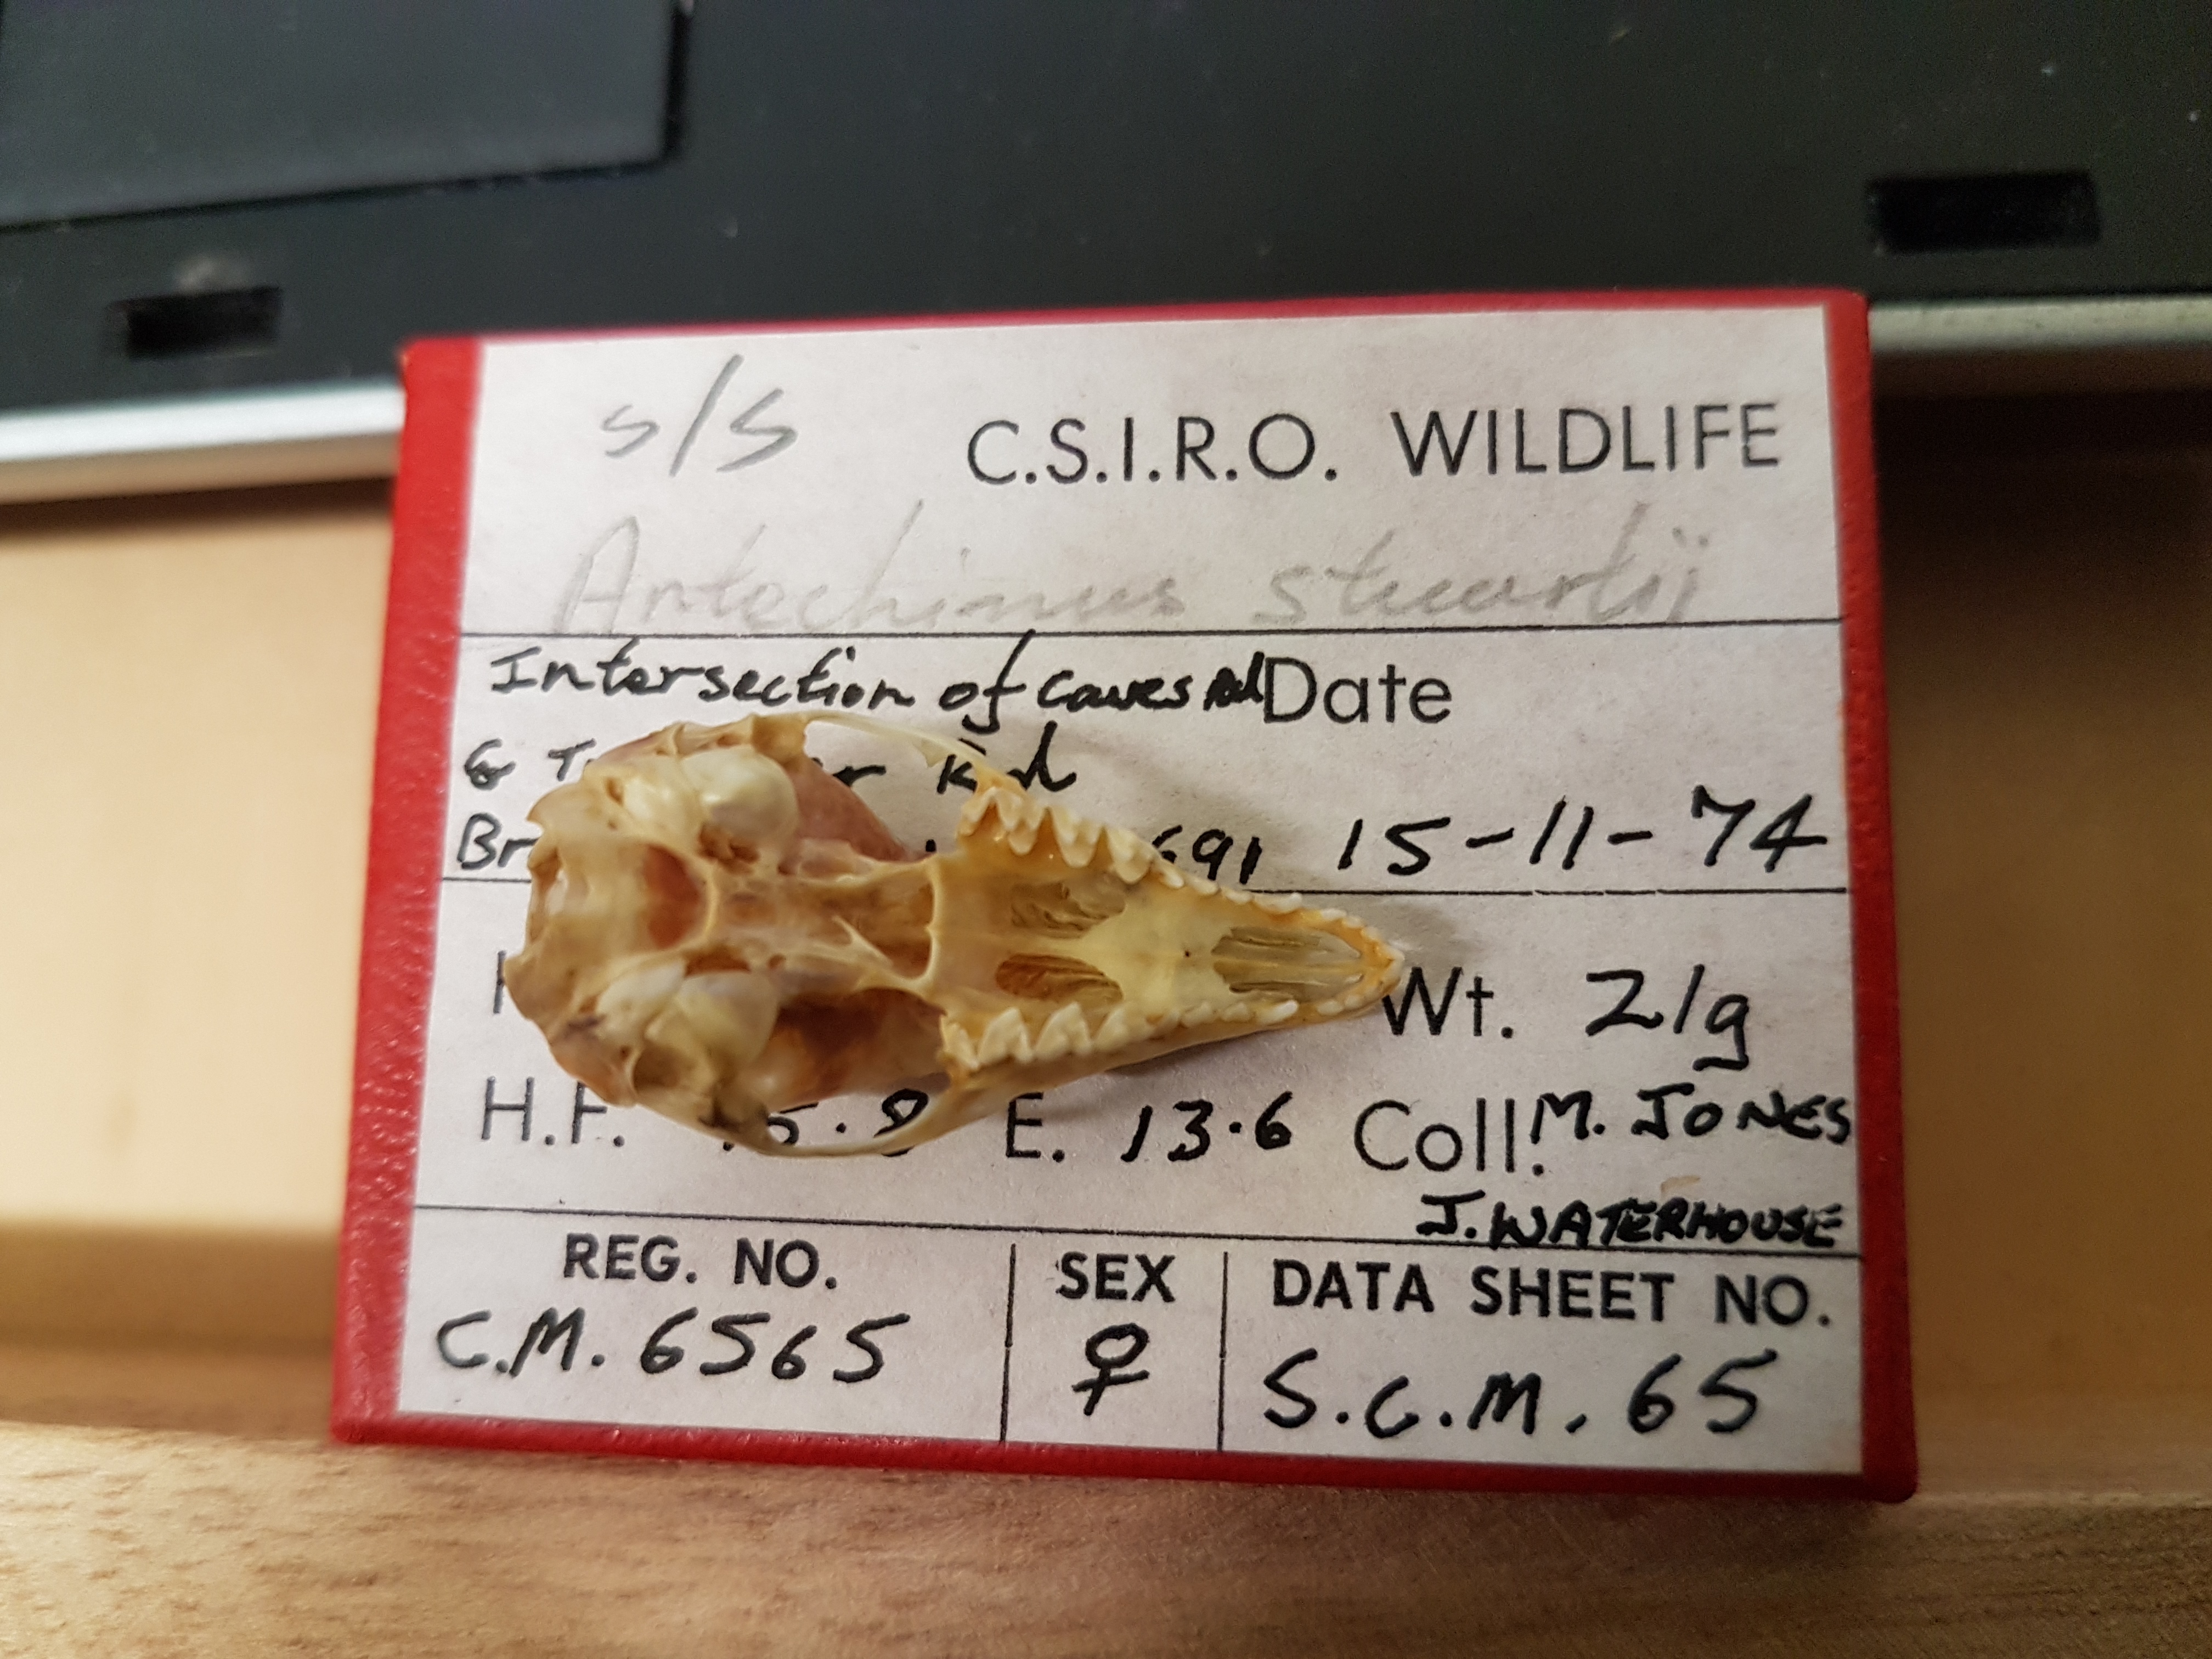 S/S C.S.I.R.O. WILDLIFE
Antechinus stuartii
Intersection of Caves Rd Date
& T
Br 691 15-11-74
Wt. 21g
H.F. E. 13.6 Coll. M. JONES
J. WATERHOUSE
REG. NO. SEX DATA SHEET NO.
C.M. 6565 ♀ S.C.M. 65